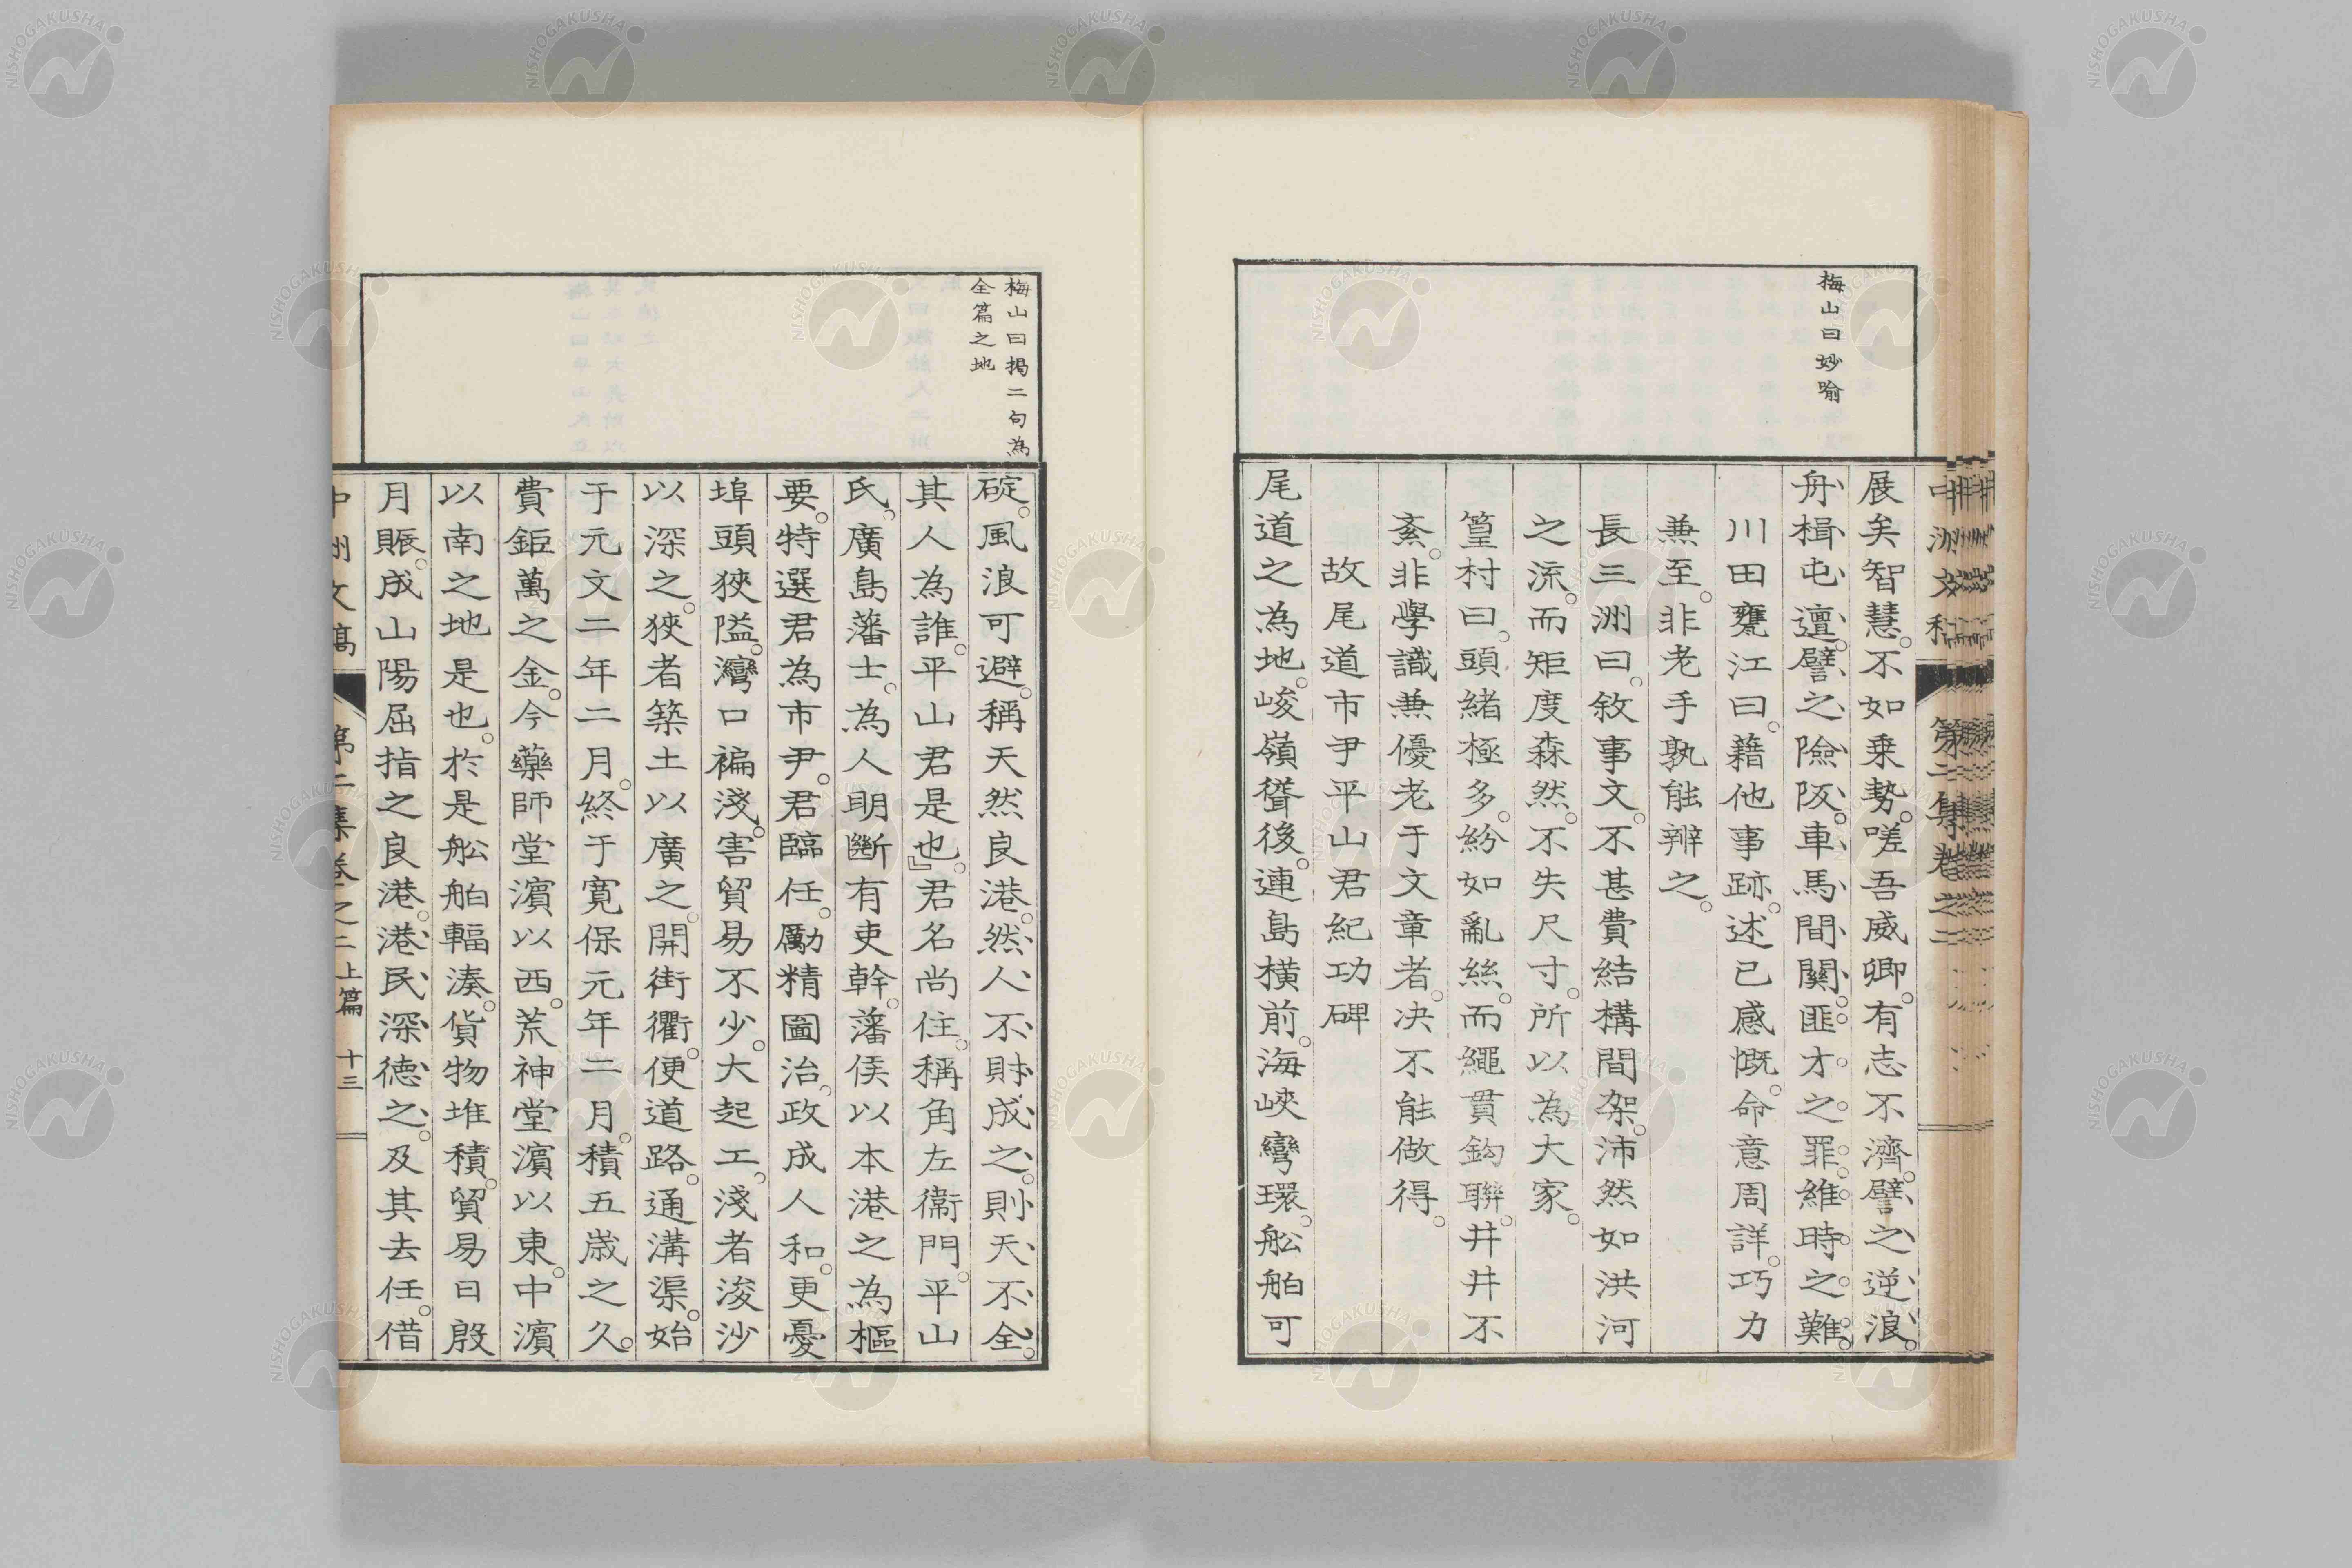 梅山曰妙喻
展矣智慧。不如乗勢。嗟吾威卿。有志不濟。譬之逆浪。
舟楫屯邅。譬之險阪。車馬間關。匪才之罪。維時之難。
川田甕江曰。藉他事跡。述己感慨。命意周詳。巧力
兼至。非老手孰能辨之。
長三洲曰。敘事文。不甚費結構間架。沛然如洪河
之流。而矩度森然。不失尺寸。所以為大家。
篁村曰。頭緒極多。紛如亂絲。而繩貫鈎聯。井井不
紊。非學識兼優老于文章者。决不能做得。
故尾道市尹平山君紀功碑
尾道之為地。峻嶺聳後。連島橫前。海峽彎環。舩舶可
梅山曰揭二句為
全篇之地
碇。風浪可避。稱天然良港。然人不財成之。則天不全。
其人為誰。平山君是也。』君名尚住。稱角左衞門。平山
氏。廣島藩士。為人明斷有吏幹。藩侯以本港之為樞
要。特選君為市尹。君臨任。勵精圖治。政成人和。更憂
埠頭狹隘。灣口褊淺。害貿易不少。大起工。淺者浚沙
以深之。狹者築土以廣之。開街衢。便道路。通溝渠。始
于元文二年二月。終于寬保元年二月。積五歲之久。
費鉅萬之金。今藥師堂濵以西。荒神堂濵以東。中濵
以南之地是也。於是舩舶輻湊。貨物堆積。貿易日殷
月賑。成山陽屈指之良港。港民深德之。及其去任。借
中洲文稿 第二集卷之二 上篇 十三
NISHOGAKUSHA